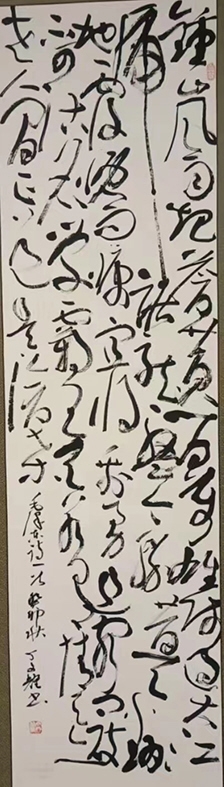 鍾山風雨起蒼黃百萬雄師過大江
虎踞龍盤今勝昔天翻
地覆慨而慷宜将剩勇追窮寇
不可沽名學霸王天若有情天亦
老人間正道是滄桑
毛澤東詩一首 癸卯秋 丁文書